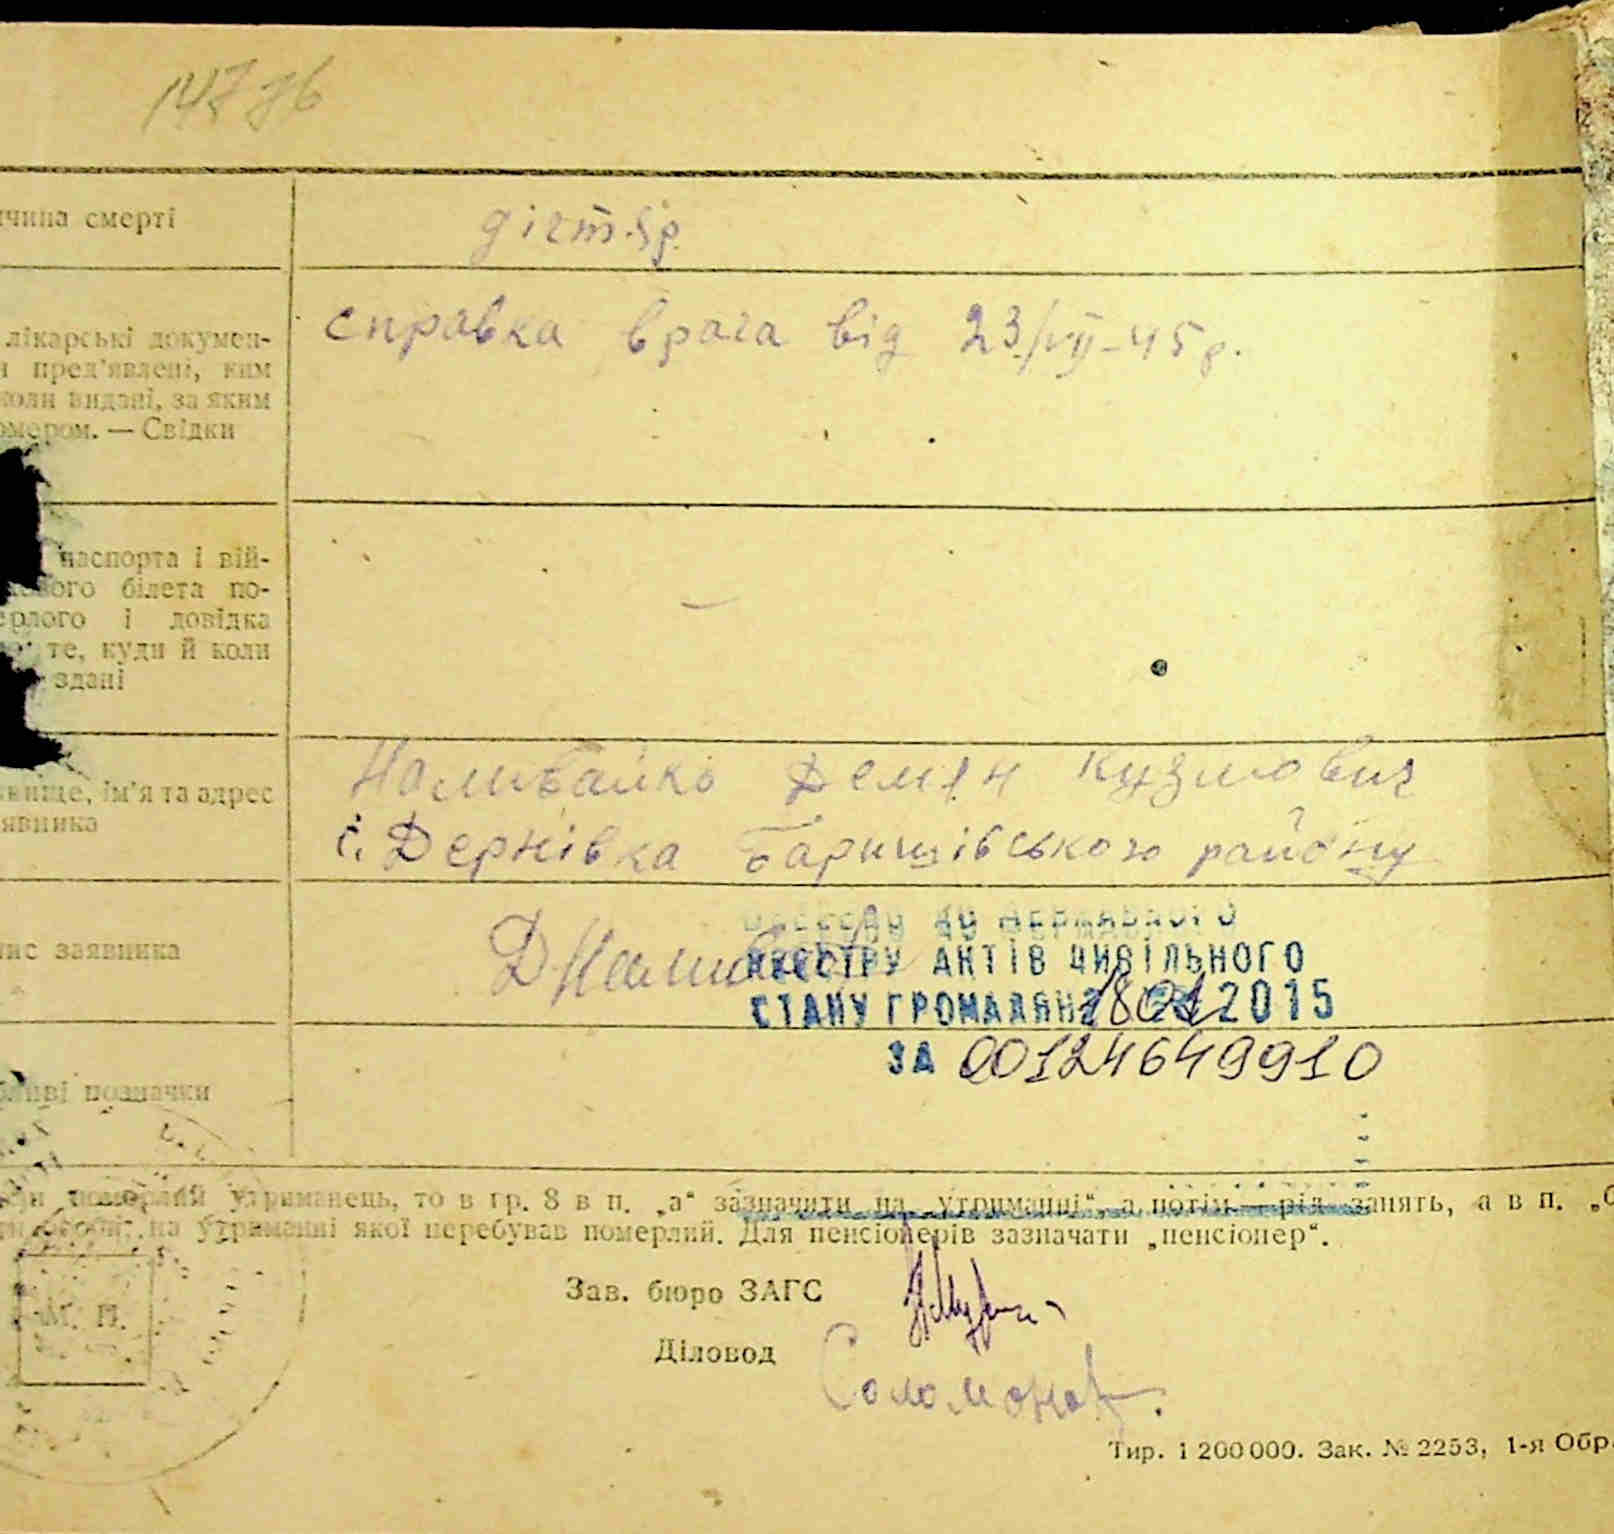 147
чина смерті
лікарські докумен-
пред'явлені, ким
коли видані, за яким
омером. — Свідки
справка врача від 23/VII-45р.
паспорта і вій-
ового білета по-
ерлого і довідка
те, куди й коли
здані
ім'я та адрес
явника
Наливайко Демян Кузмович
с. Дернівка Баришівського району
ис заявника
ДНалив
до державного
реєстру актів цивільного
стану громадян 2015
за 00124649910
позначки
померлий утриманець, то в гр. 8 в п. „а“ зазначити „на утриманні“, а потім — рід занять, а в п.
на утриманні якої перебував померлий. Для пенсіонерів зазначати „пенсіонер“.
М. П.
Зав. бюро ЗАГС
Діловод
Тир. 1 200 000. Зак. № 2253, 1-я Обр